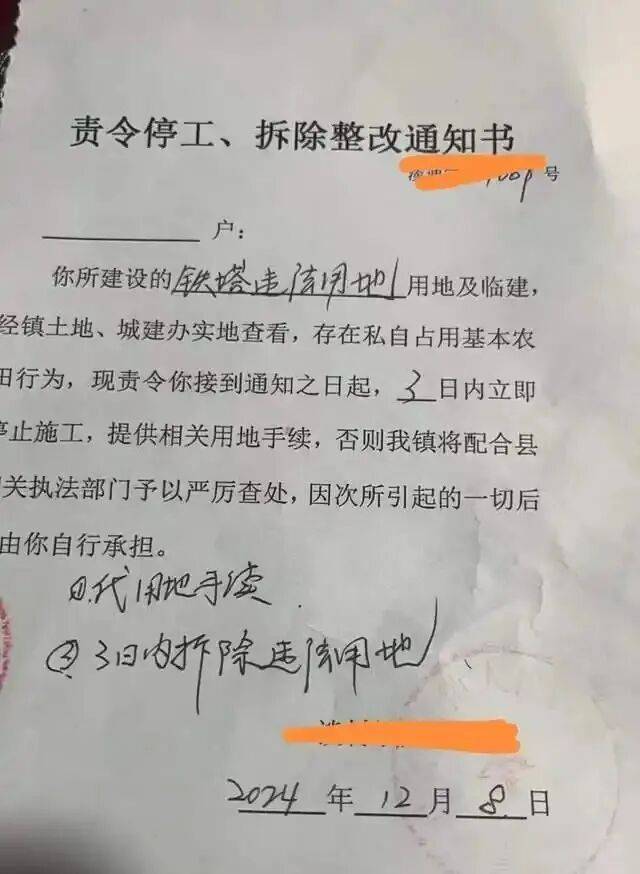 责令停工、拆除整改通知书
号
户：
你所建设的铁塔违法用地用地及临建，
经镇土地、城建办实地查看，存在私自占用基本农
田行为，现责令你接到通知之日起，3日内立即
停止施工，提供相关用地手续，否则我镇将配合县
关执法部门予以严厉查处，因次所引起的一切后
由你自行承担。
①代用地手续
②3日内拆除违法用地、
2024年12月8日